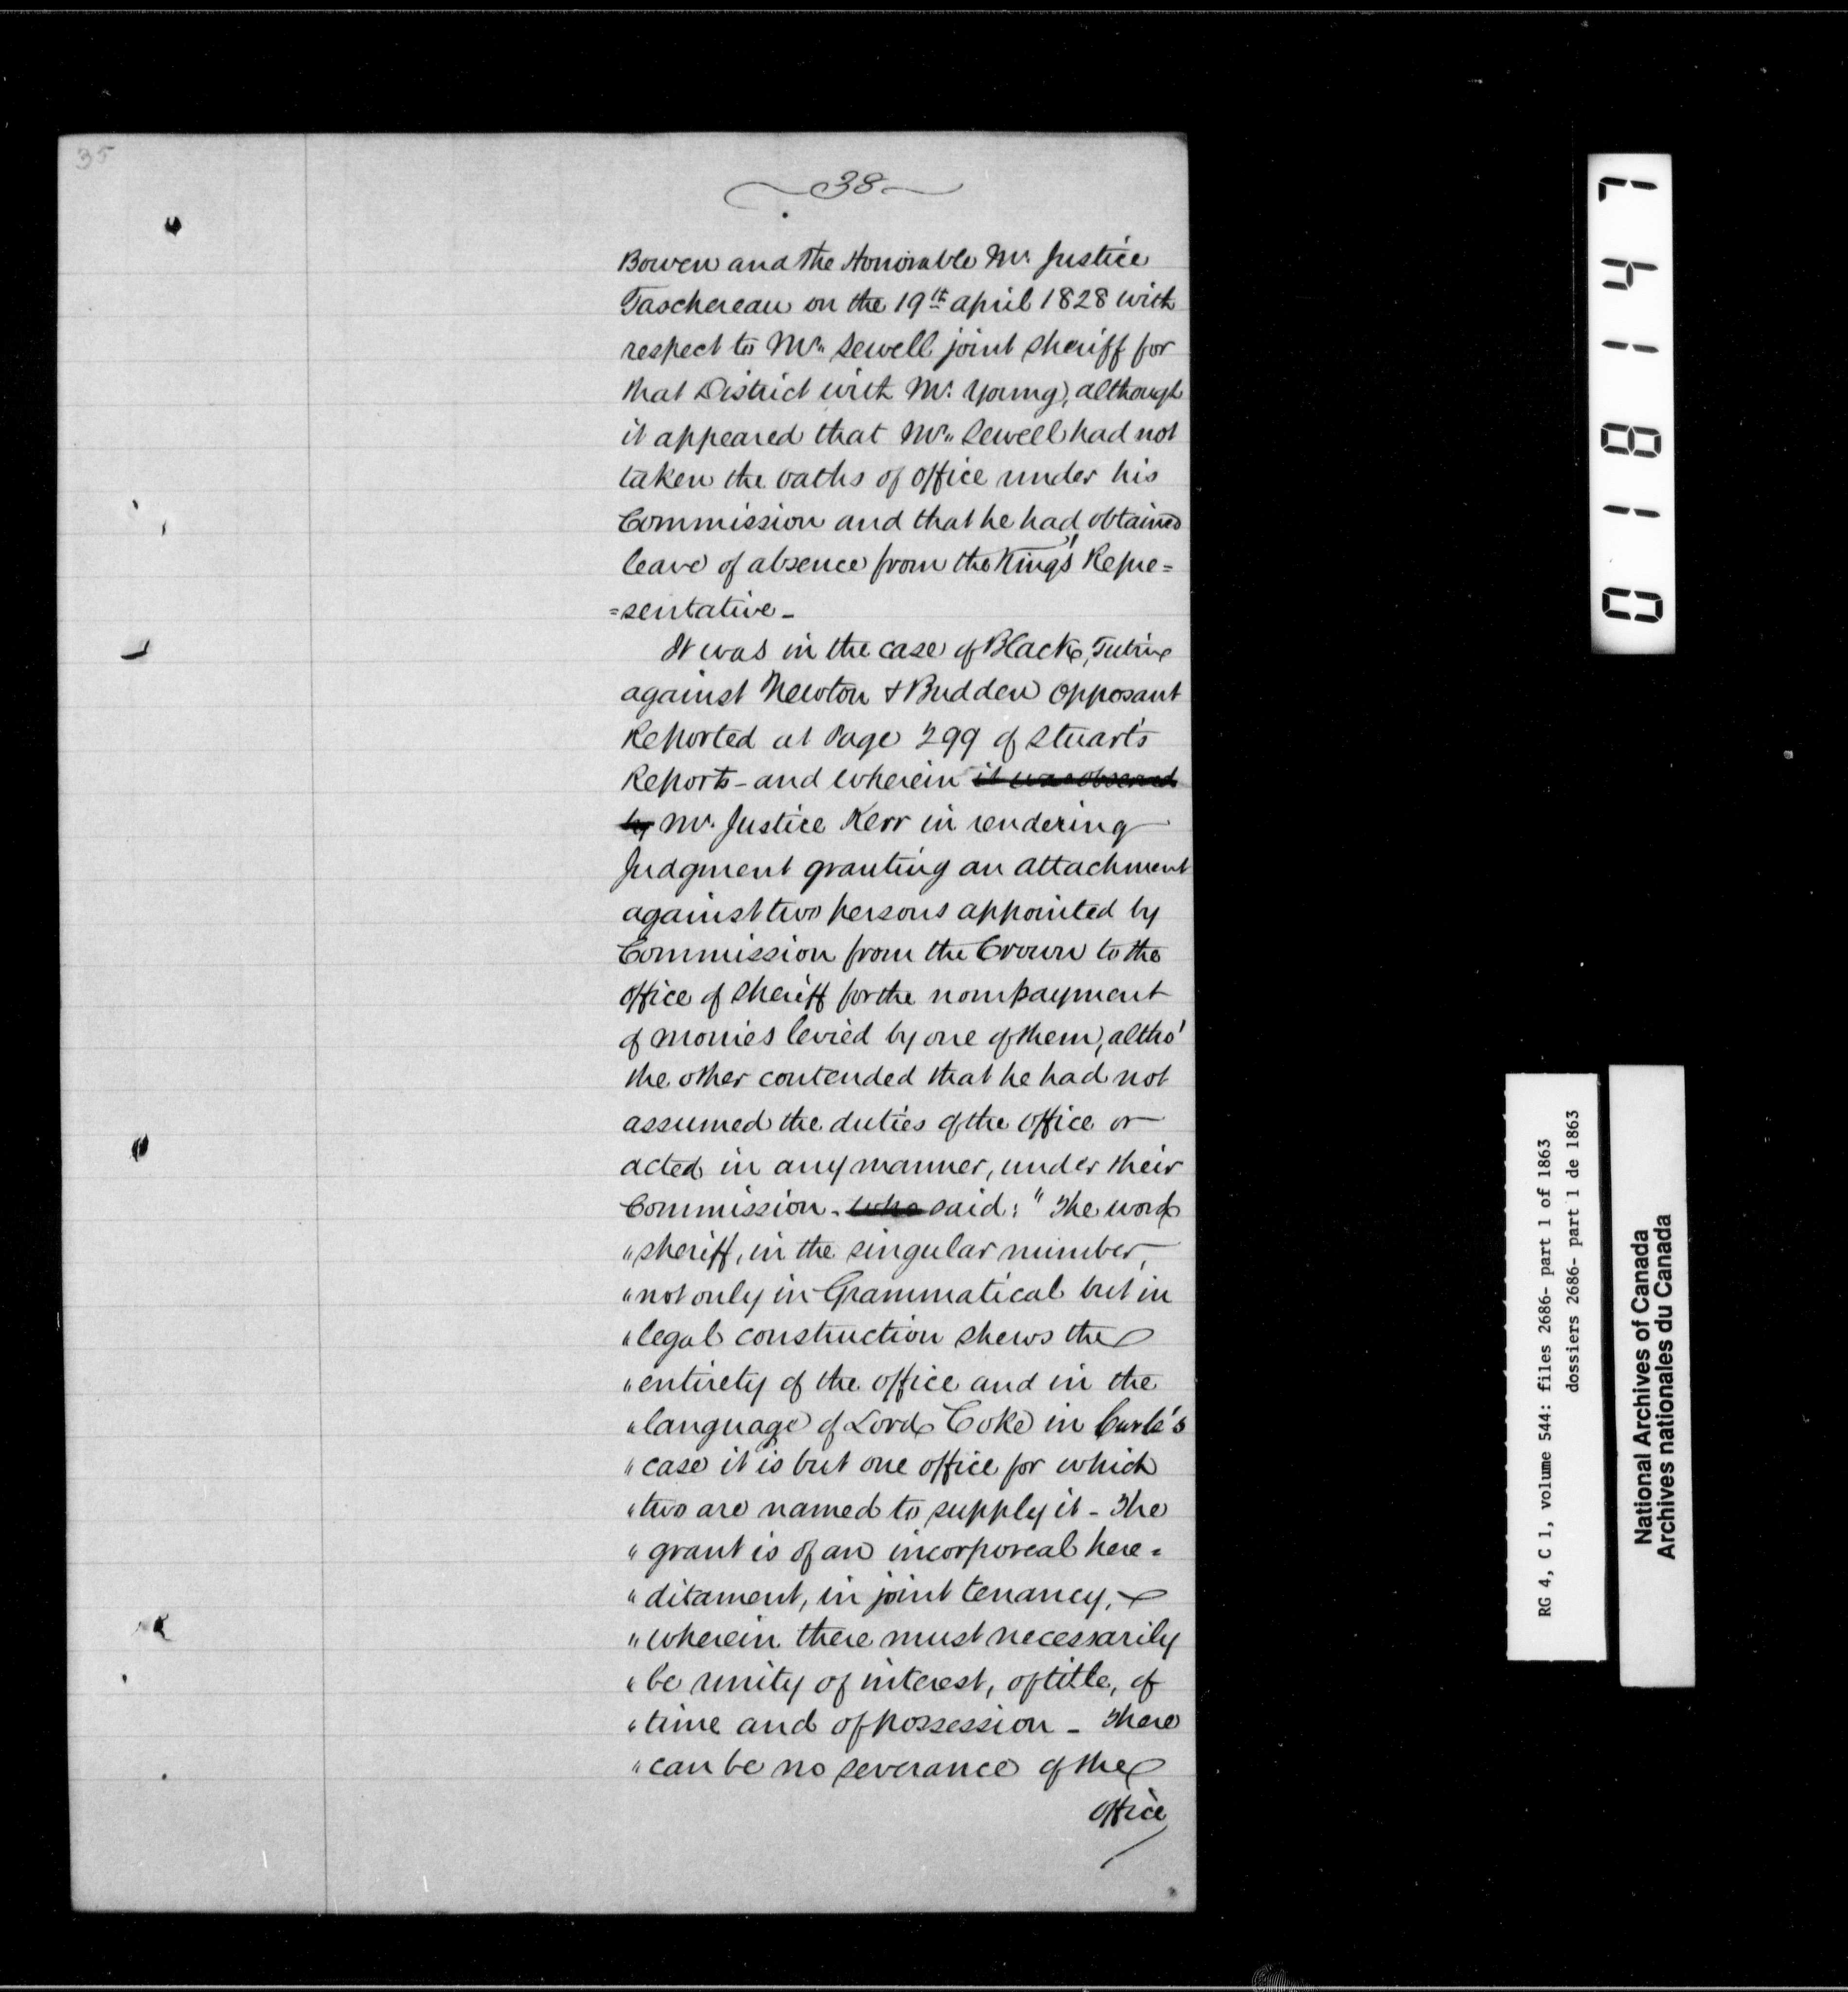 35
38
Bowen and the Honorable Mr. Justice
Taschereau on the 19th april 1828 with
respect to Mr. Sewell joint sheriff for
that District with Mr. Young, although
it appeared that Mr. Sewell had not
taken the oaths of office under his
Commission and that he had obtained
leave of absence from the King's Repre=
=sentative _
It was in the case of Black, Tutrix
against Newton & Budden opposant
Reported at Page 299 of Stuart's
Reports - and wherein it was observed
by Mr. Justice Kerr in rendering
Judgment granting an attachment
against two persons appointed by
Commission from the Crown to the
office of sheriff for the nonpayment
of monies levied by one of them, altho'
the other contended that he had not
assumed the duties of the office or
acted in any manner, under their
Commission. who said: " The word
" sheriff, in the singular number,
" not only in Grammatical but in
" legal construction shews the
" entirety of the office and in the
" language of Lord Coke in Curle's
" case it is but one office for which
" two are named to supply it - The
" grant is of an incorporeal here=
" ditament, in joint tenancy,
" wherein there must necessarily
" be unity of interest, of title, of
" time and of possession _ There
" can be no severance of the
office
018147
RG 4, C 1, volume 544: files 2686- part 1 of 1863
dossiers 2686- part 1 de 1863
National Archives of Canada
Archives nationales du Canada